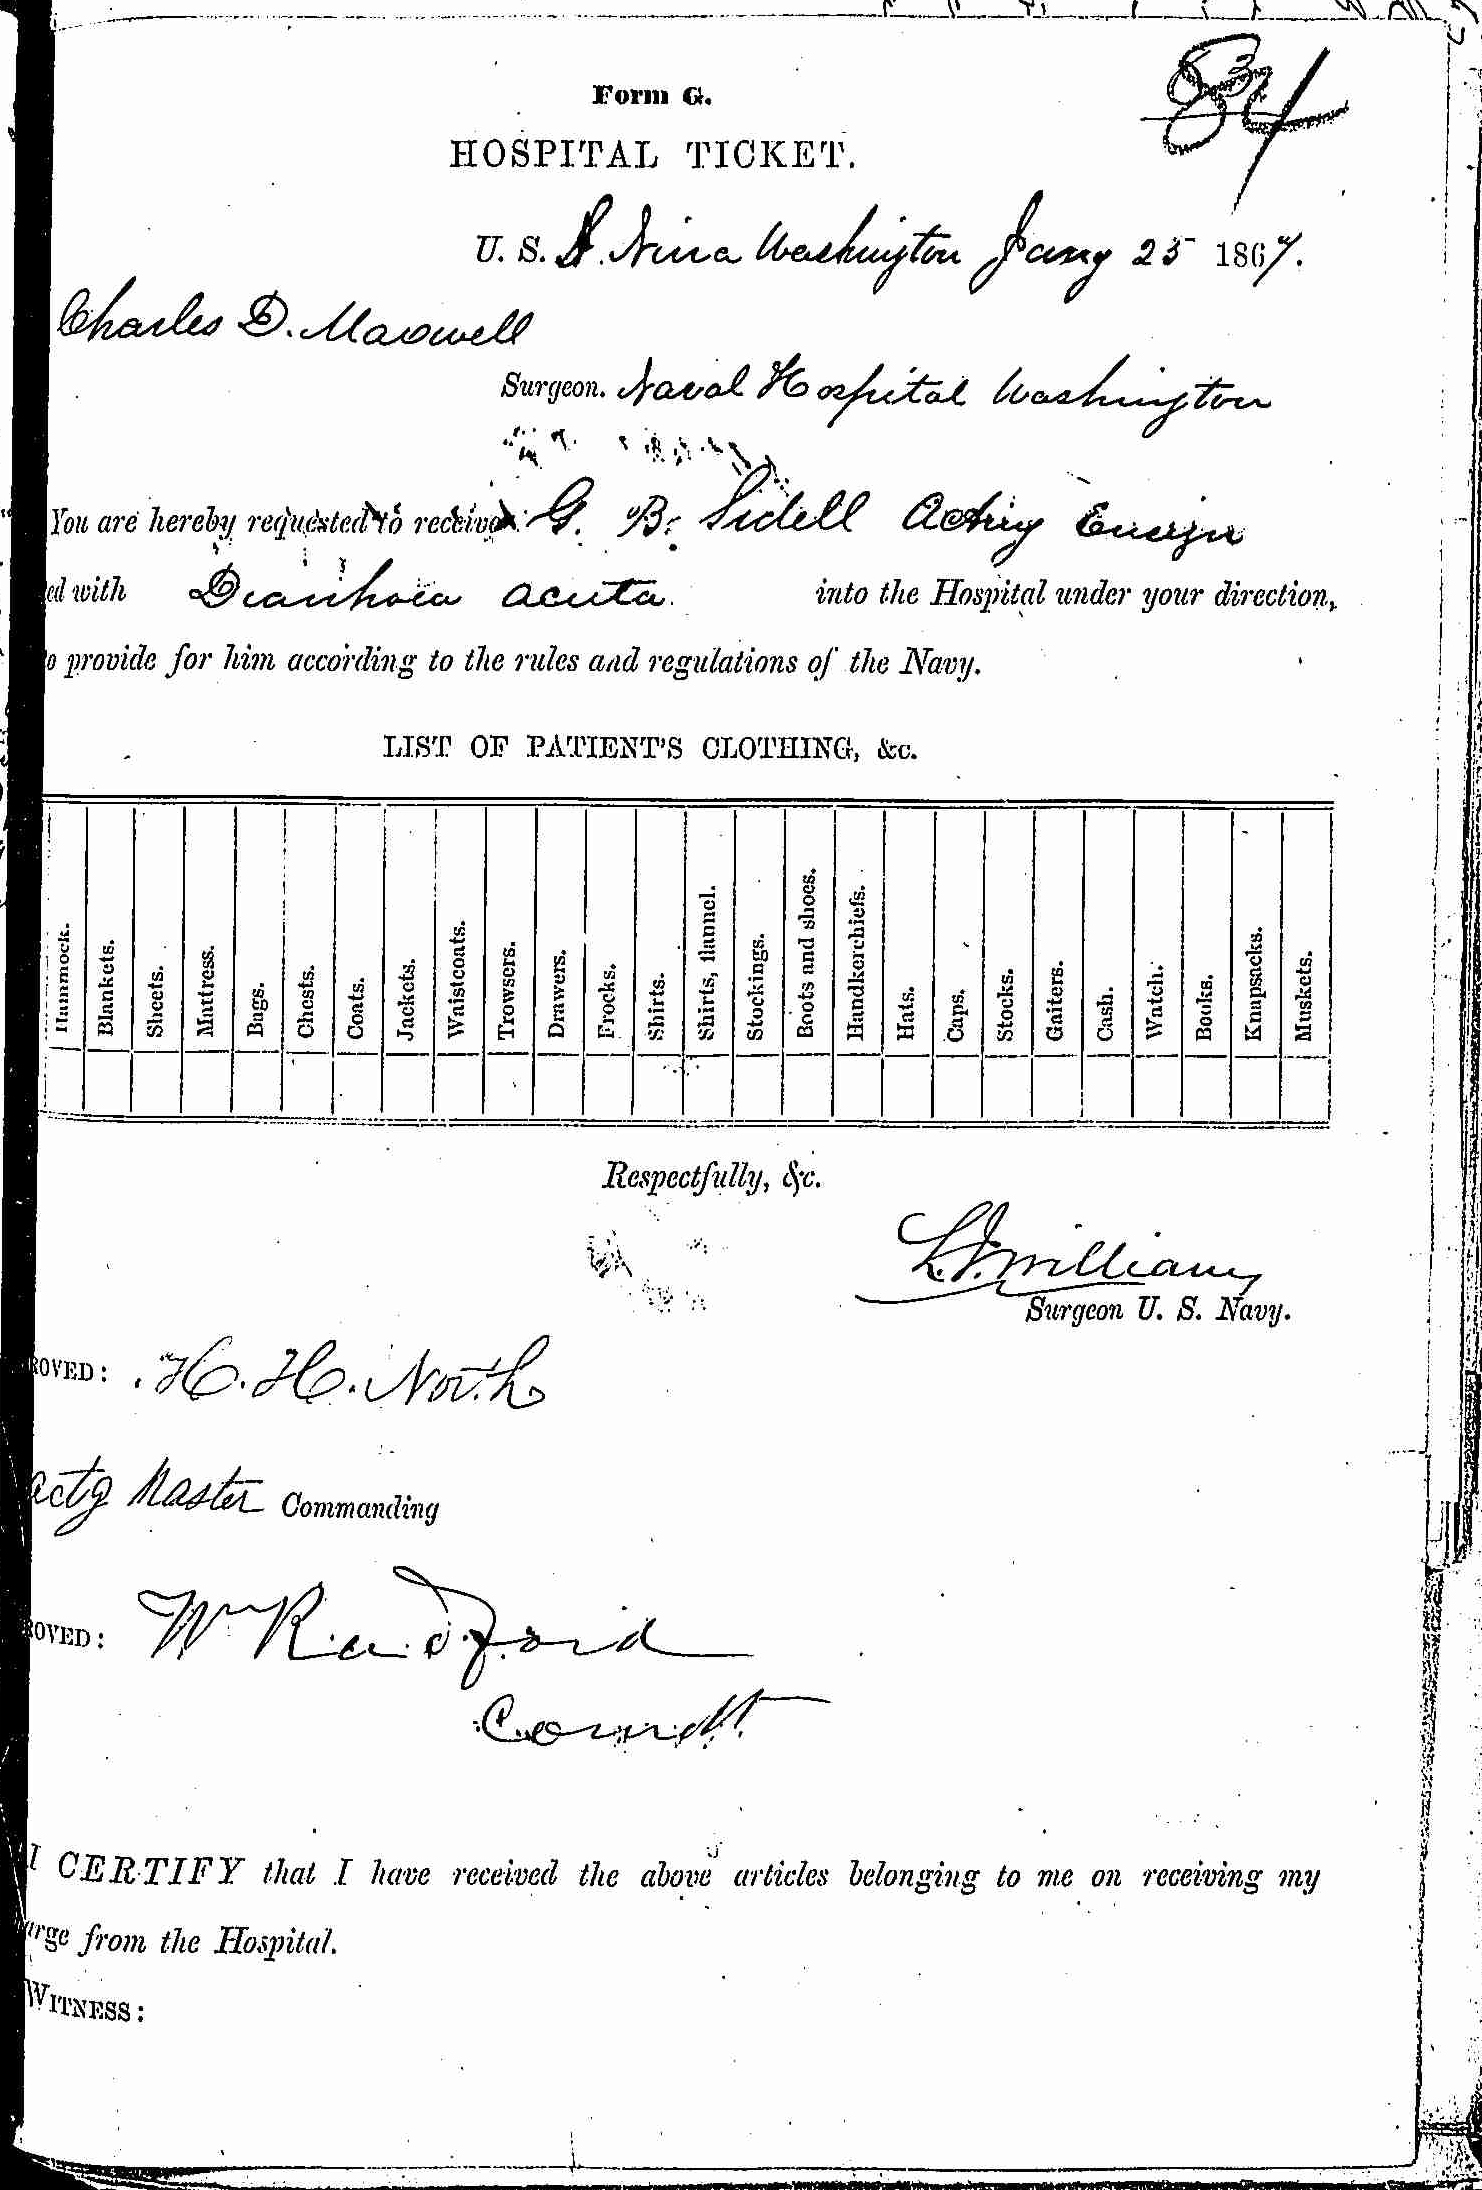 Form G.
84
HOSPITAL TICKET.
U. S. S. Nina Washington Jany 25 1867.
Charles D. Maxwell
Surgeon. Naval Hospital Washington
You are hereby requested to receive G. B. Sidell Acting Ensign
ed with Diarrhoea acuta. into the Hospital under your direction,
o provide for him according to the rules and regulations of the Navy.
LIST OF PATIENT'S CLOTHING, &c.
Hammock.
Blankets.
Sheets.
Mattress.
Bags.
Chests.
Coats.
Jackets.
Waistcoats.
Trowsers.
Drawers.
Frocks.
Shirts.
Shirts, flannel.
Stockings.
Boots and shoes.
Handkerchiefs.
Hats.
Caps.
Stocks.
Gaiters.
Cash.
Watch.
Books.
Knapsacks.
Muskets.
Respectfully, &c.
Williams
Surgeon U. S. Navy.
ROVED: H. H. North
actg Master Commanding
ROVED: Wm Radford
Comdt.
I CERTIFY that I have received the above articles belonging to me on receiving my
arge from the Hospital.
WITNESS: